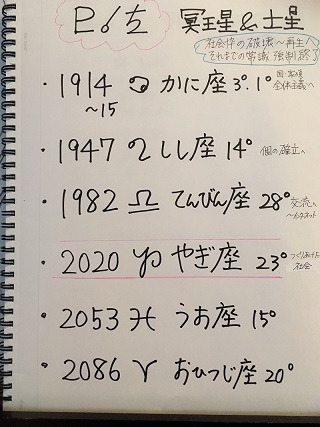 冥王星&土星
社会枠の破壊〜再生へ
それまでの常識 強制終了
・1914 ♋ かに座 3°.1°
〜15
全体主義へ
・1947 ♌ しし座 14° 個の確立へ
・1982 ♎ てんびん座 28° 交流へ
〜インターネット
・2020 ♑ やぎ座 23°
社会
・2053 ♓ うお座 15°
・2086 ♈ おひつじ座 20°